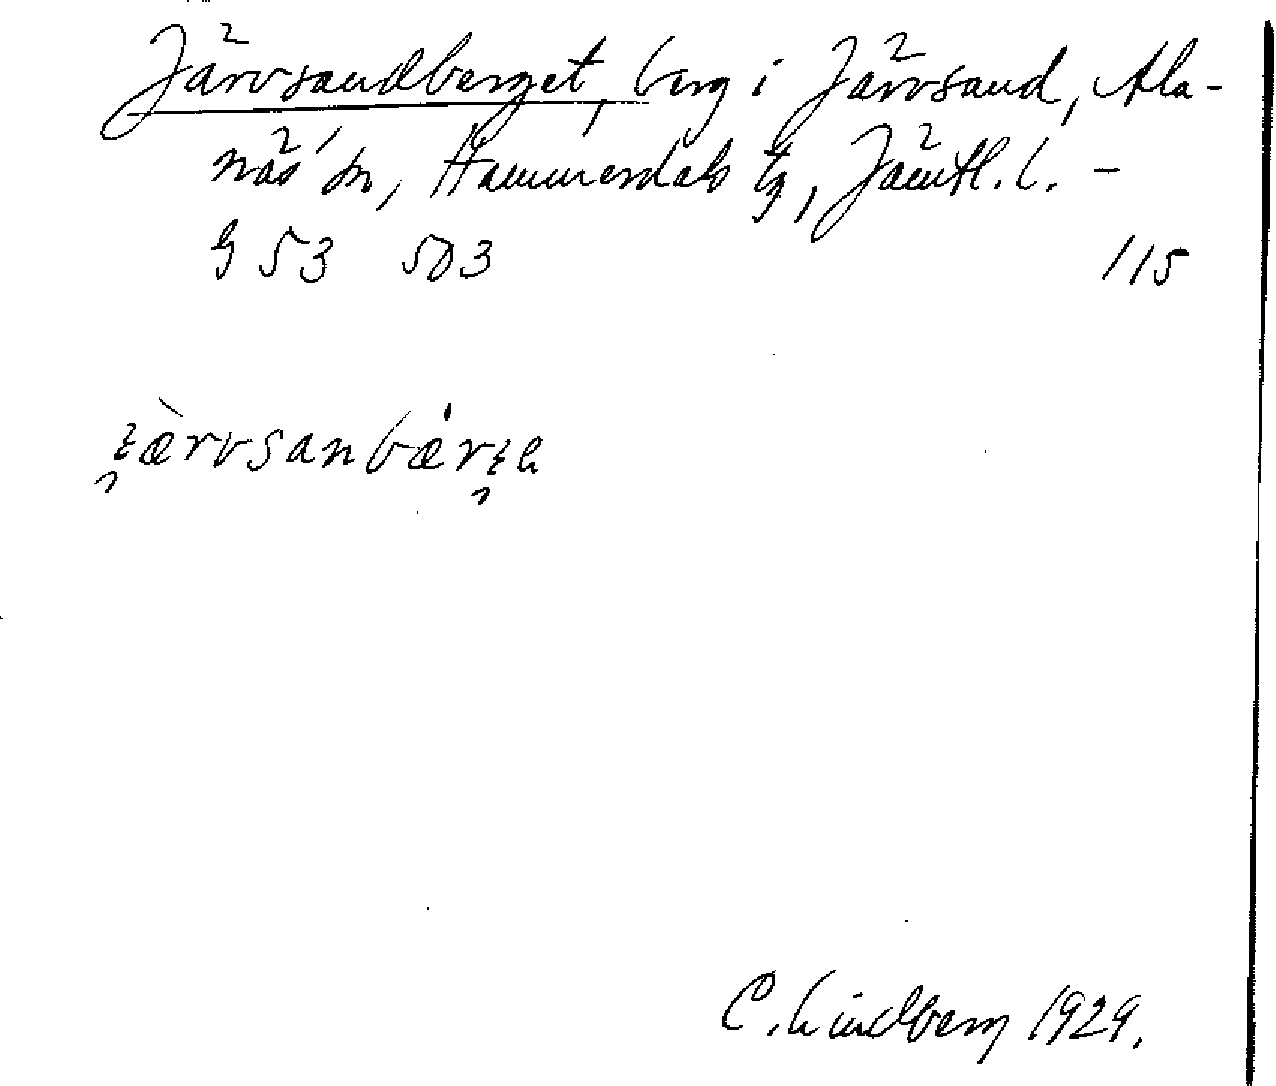 Järvsandberget, berg i Järvsand, Ala-
näs sn, Hammerdals tg, Jämtl. l. -
G 53 503 115
C. Lindberg 1929.